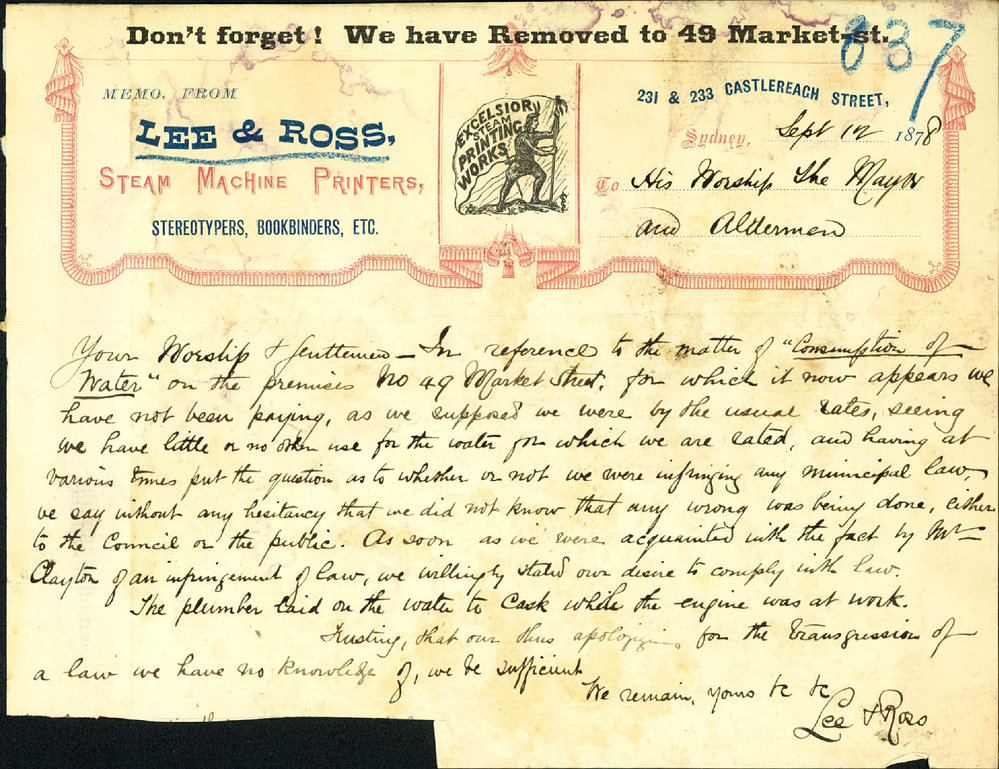 Don't forget! We have Removed to 49 Market-st.
837
MEMO. FROM
LEE & ROSS,
STEAM MACHINE PRINTERS,
STEREOTYPERS, BOOKBINDERS, ETC.
EXCELSIOR
STEAM
PRINTING
WORKS
231 & 233 CASTLEREACH STREET,
Sydney, Sept 12 1878
To His Worship The Mayor
and Aldermen
Your Worship & Gentlemen – In reference to the matter of "Consumption of
Water" on the premises No 49 Market Street, for which it now appears we
have not been paying, as we supposed we were by the usual rates, seeing
we have little or no other use for the water for which we are rated, and having at
various times put the question as to whether or not we were infringing any municipal law,
we say without any hesitancy that we did not know that any wrong was being done, either
to the Council or the public. As soon as we were acquainted with the fact by Mr
Clayton of an infringement of law, we willingly stated our desire to comply with law.
The plumber laid on the water to Cask while the engine was at work.
Trusting, that our thus apologizing for the transgression of
a law we have no knowledge of, we be sufficient
We remain, yours &c &c
Lee & Ross